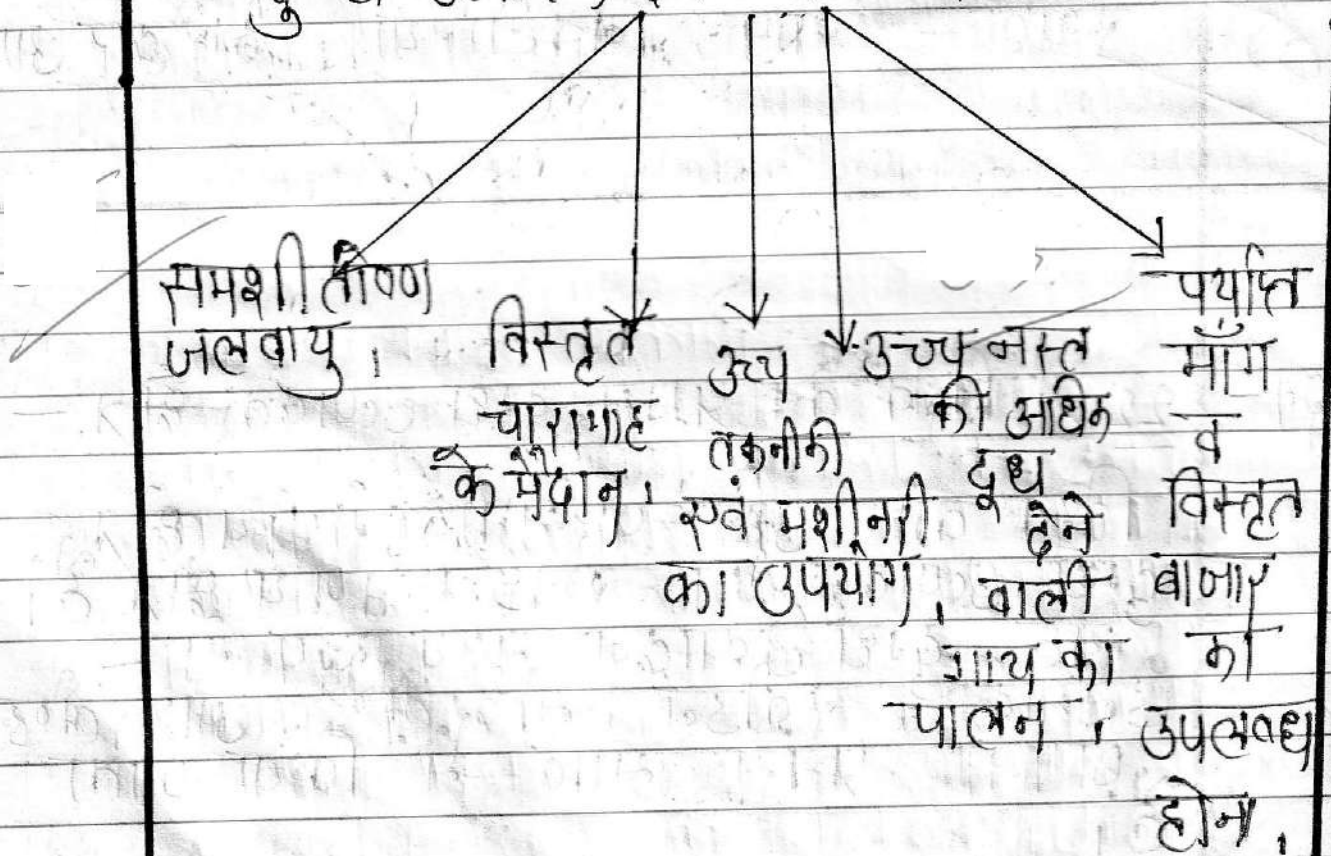 समशीतोष्ण
जलवायु।
विस्तृत
चारागाह
के मैदान।
उच्च
तकनीकी
एवं मशीनरी
का उपयोग।
उच्च नस्ल
की अधिक
दूध
देने
वाली
गाय का
पालन।
पर्याप्त
माँग
व
विस्तृत
बाजार
का
उपलब्ध
होना।